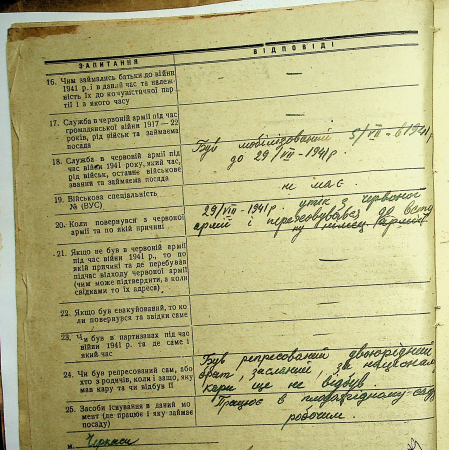 ЗАПИТАННЯ ВІДПОВІДІ
16. Чим займались батьки до війни
1941 р. і в даний час та належ-
ність їх до комуністичної пар-
тії і з якого часу
—
17. Служба в червоній армії під час
громадянської війни 1917—22
років, рід військ та займаєма
посада
—
18. Служба в червоній армії під
час війни 1941 року, який час,
рід військ, останнє військове
звання та займаєма посада
Був мобілізований 5/VII - 1941 р.
до 29/VIII - 1941 р.
19. Військова спеціальність
№ (ВУС)
не має.
20. Коли повернувся з червоної
армії та по якій причині
29/VIII - 1941 р. утік з червоної
армії і переховувавсь до
німец. армії
21. Якщо не був в червоній армії
під час війни 1941 р., то по
якій причині та де перебував
підчас відходу червоної армії
(чим може підтвердити, а коли
свідками то їх адреса)
—
22. Якщо був евакуйований, то ко-
ли повернувся та звідки саме
—
23. Чи був в партизанах під час
війни 1941 р. та де саме і
який час
—
24. Чи був репресований сам, або
хто з родичів, коли і защо, яку
мав кару та чи відбув її
Був репресований двоюрідний
брат, засланий за
кари ще не відбув
25. Засоби існування в даний мо-
мент (де працює і яку займає
посаду)
Працює в
робочим.
м. Черкаси